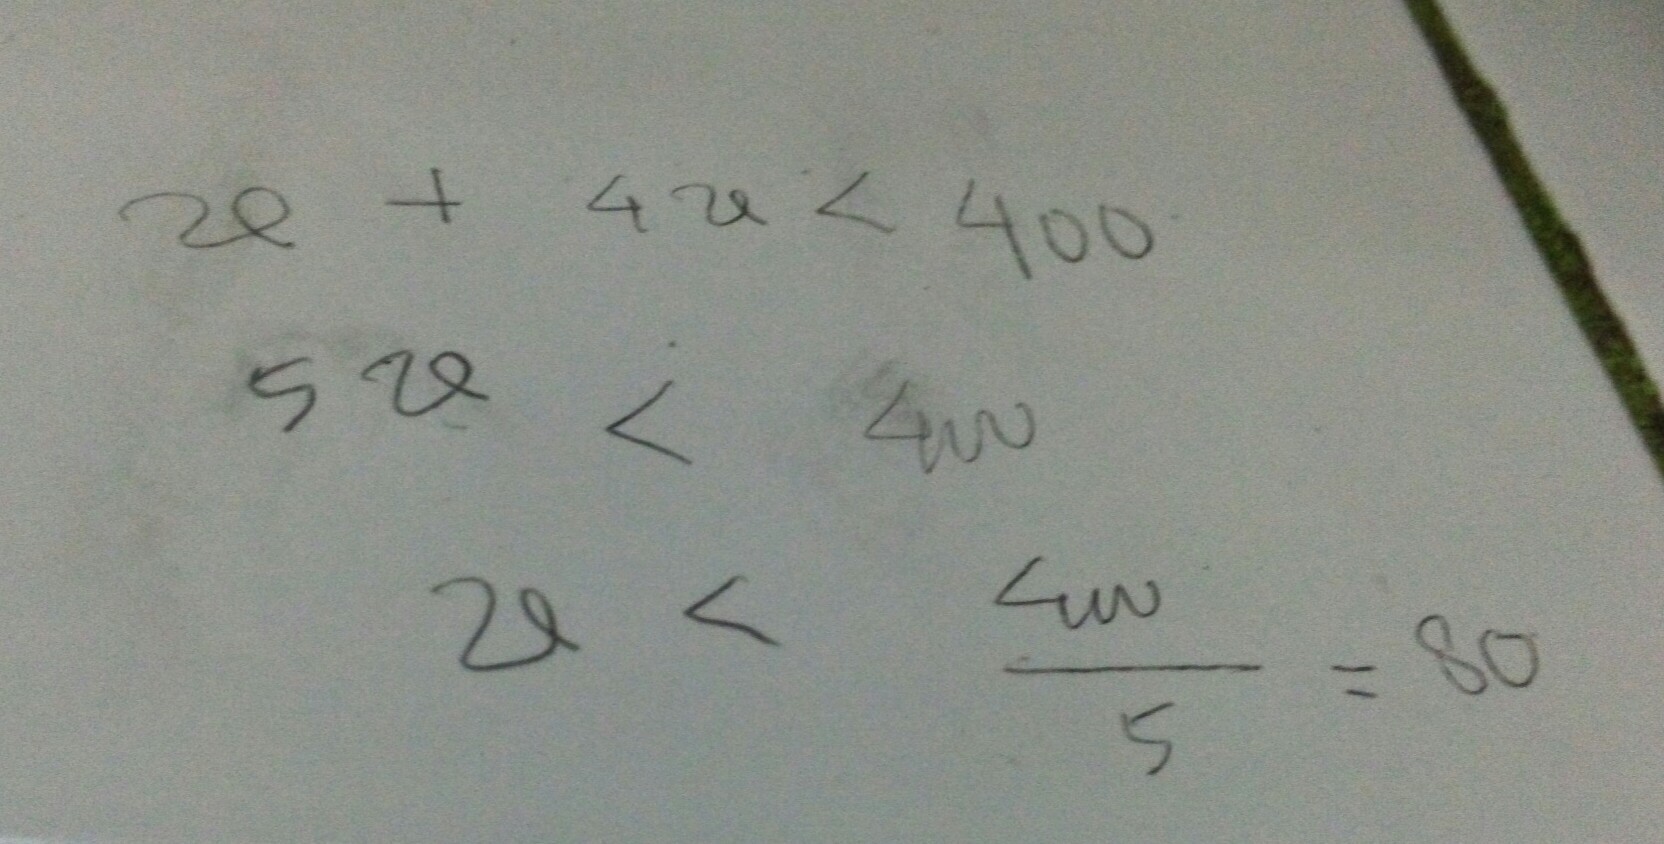 x + 4x < 400
5x < 400
x < 400/5 = 80